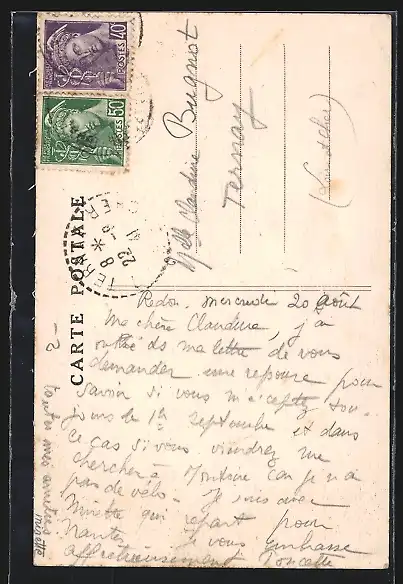 POSTES 40
POSTES 50
CARTE POSTALE
Melle Claudine Bugnot
Ternay
(Loir et Cher)
Redon, mercredi 20 août
Ma chère Claudine, j'ai
oublié ds ma lettre de vous
demander une réponse pour
savoir si vous m'acceptez tou-
jours le 1er septembre et dans
ce cas si vous viendrez me
chercher à Montoire car je n'ai
pas de vélo. Je suis avec
Minette qui repart pour
Nantes. Je vous embrasse
affectueusement
toutes mes amitiés